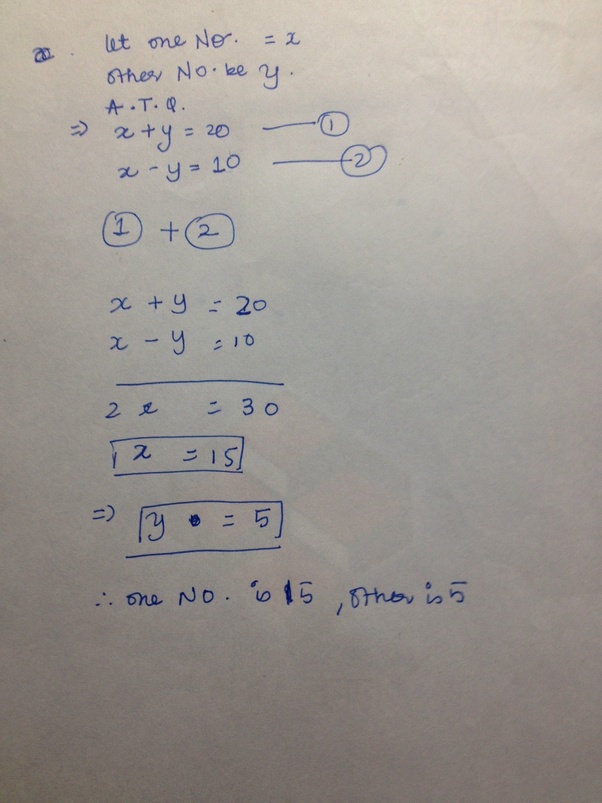 let one No. = x
other No. be y.
A.T.Q.
⇒ x + y = 20 —— ①
x - y = 10 —— ②
① + ②
x + y = 20
x - y = 10
2x = 30
x = 15
⇒ y = 5
∴ one NO. is 15, other is 5